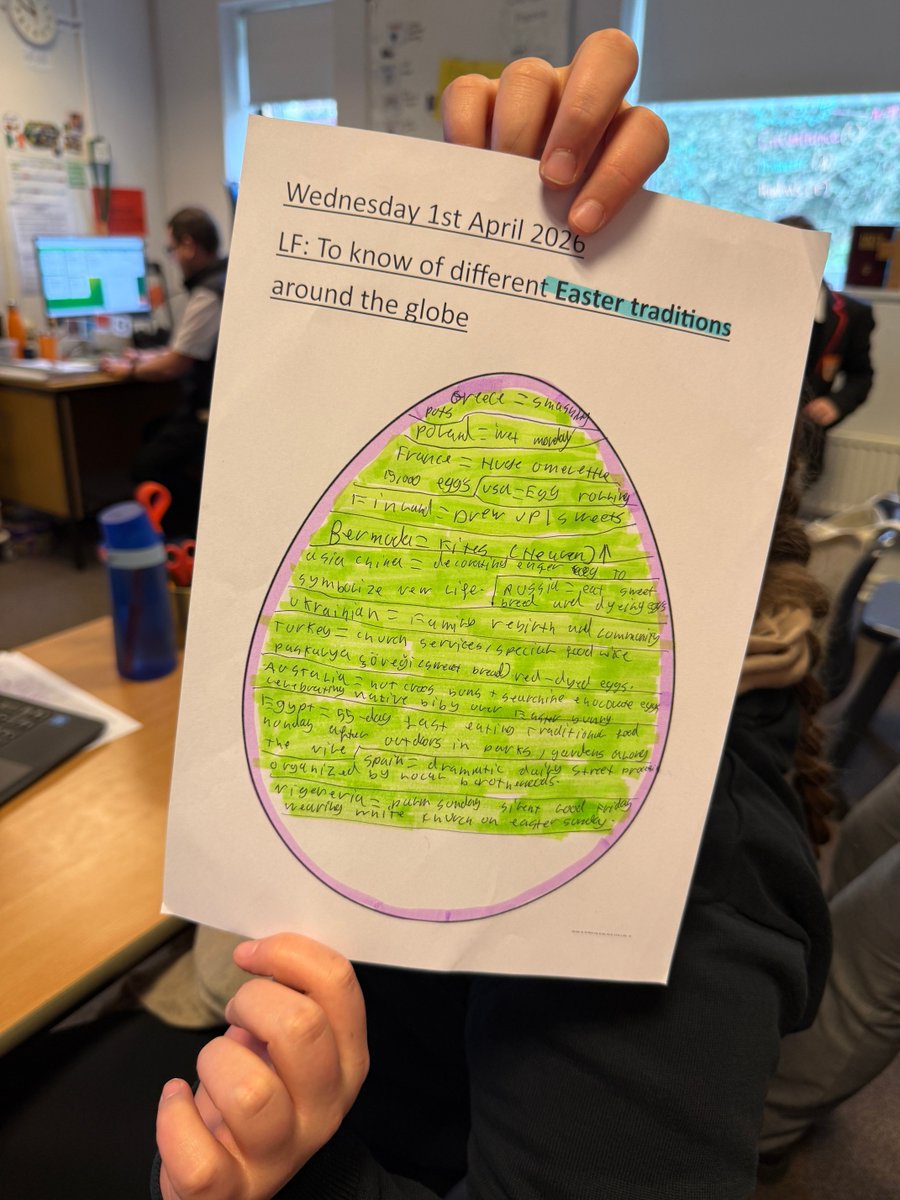 Wednesday 1st April 2026
LF: To know of different Easter traditions
around the globe
Greece = smashing
pots
Poland = wet monday
France = Huge omelette
15,000 eggs USA = Egg rolling
Finland = Drew up | sweets
Bermuda = Kites (Heaven) ↑
asia china = decorating egg to
symbolize new life. RUSSIA = eat sweet
bread and dyeing eggs
Ukrainian = Family rebirth and community
Turkey = church services, special food like
paskalya çöreği (sweet bread) red-dyed eggs.
Australia = hot cross buns + searching chocolate eggs
celebrating native bilby over Easter bunny
Egypt = 55-day fast eating traditional food
monday after outdoors in parks, gardens along
the nile Spain = dramatic daily street
organized by local
nigeria = palm sunday silent Good Friday
wearing white church on easter sunday.